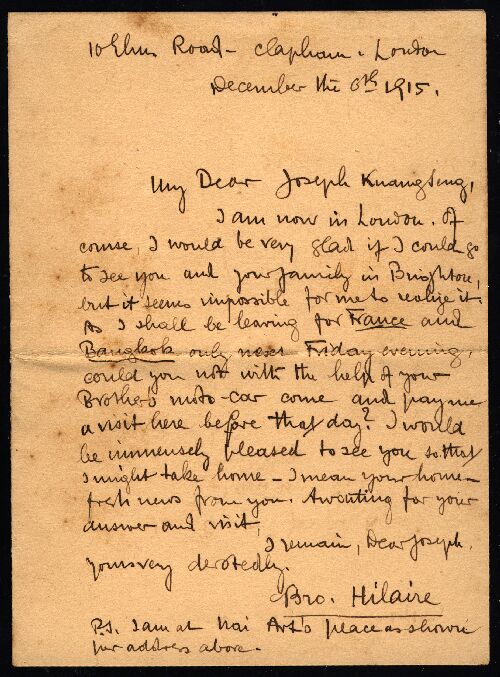 10 Elms Road - Clapham. London
December the 6th 1915.
My Dear Joseph Kuangseng,
I am now in London. Of
course, I would be very glad if I could go
to see you and your family in Brighton,
but it seems impossible for me to realize it
As I shall be leaving for France and
Bangkok only next Friday evening,
could you not with the help of your
Brother's moto-car come and pay me
a visit here before that day? I would
be immensely pleased to see you so that
I might take home - I mean your home -
fresh news from you. Awaiting for your
answer and visit,
I remain, Dear Joseph,
yours very devotedly.
Bro. Hilaire
P.S. I am at Nai Art's place as shown
per address above.